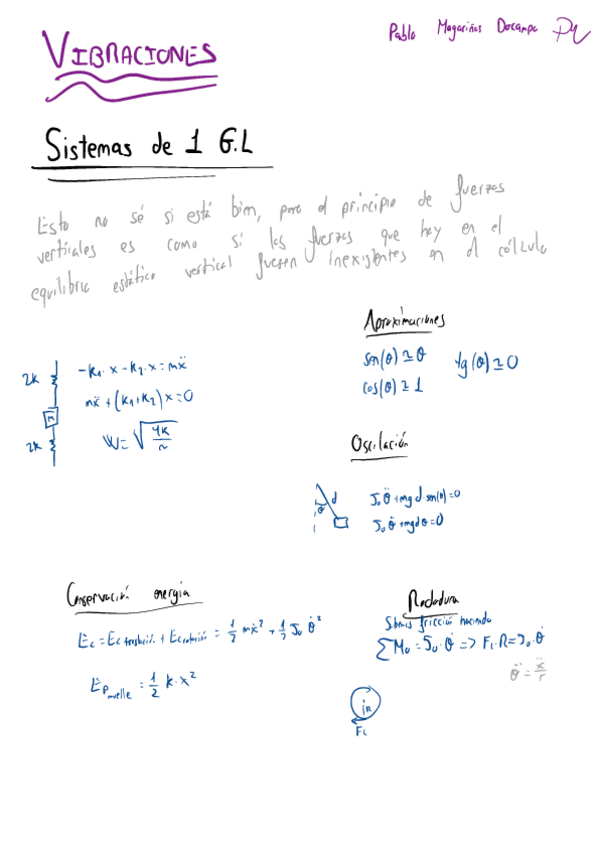 Pablo Magariños Docampo
VIBRACIONES
Sistemas de 1 G.L
Esto no sé si está bim, pero el principio de fuerzas
verticales es como si las fuerzas que hay en el
equilibrio estático vertical fuesen inexistentes en el cálculo
Aproximaciones
sen(θ) ≃ θ tg(θ) ≃ θ
cos(θ) ≃ 1
2K
-K₁·x - K₂·x = mẍ
mẍ + (K₁+K₂)x = 0
2K
W = √(4K/m)
Oscilación
d
θ
J₀ θ̈ + mgd sen(θ) = 0
J₀ θ̈ + mgdθ = 0
Conservación energía
Ec = Ec traslación + Ec rotación = 1/2 mẋ² + 1/2 J₀ θ̇²
Ep muelle = 1/2 k·x²
Rodadura
fricción haciendo
∑M₀ = J₀·θ̈ => F₁·R = J₀·θ̈
θ̈ = ẍ/r
R